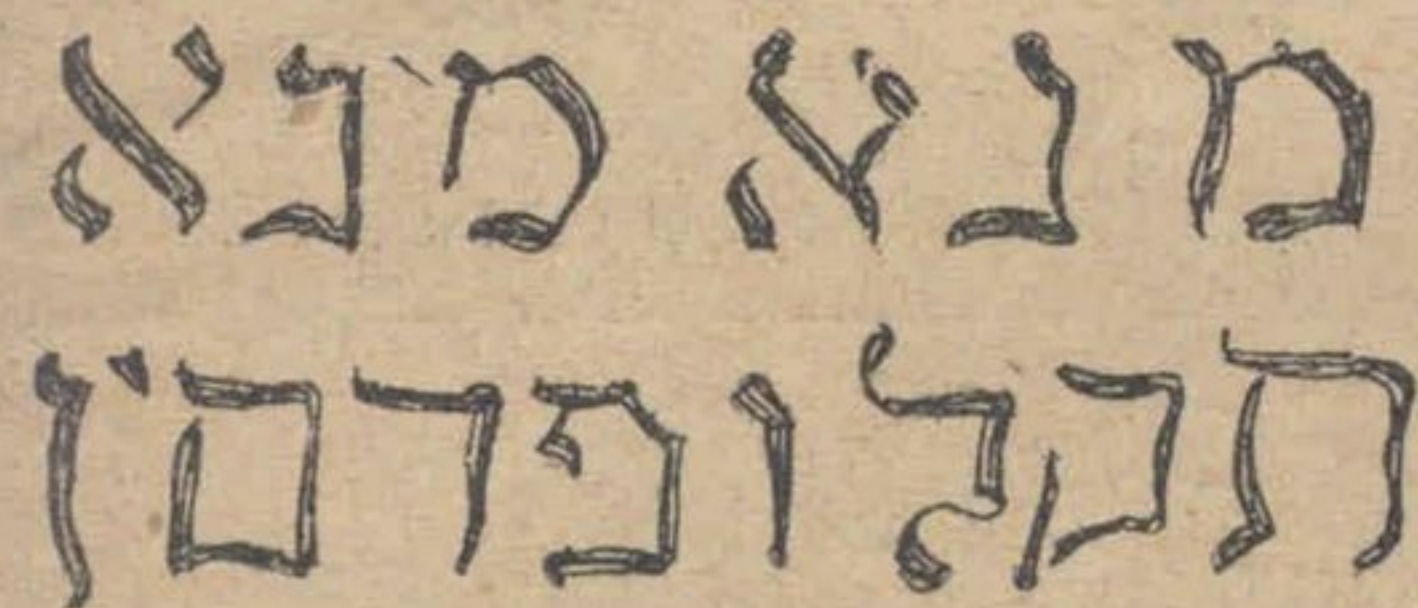 מנא מנא
תקל ופרסין